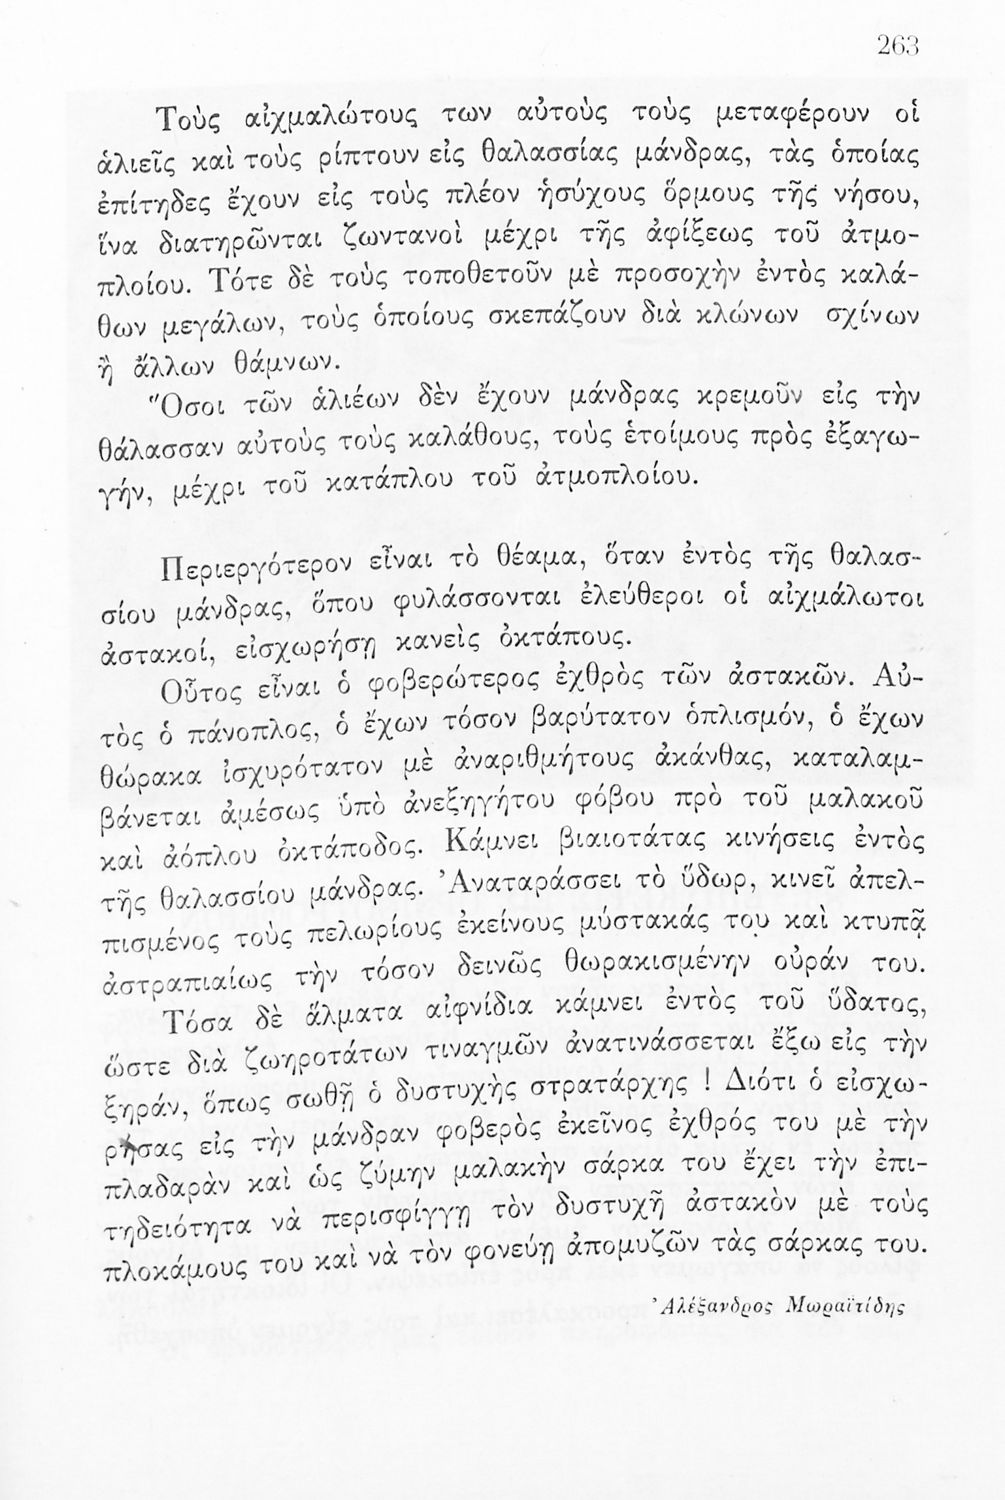 263
Τοὺς αἰχμαλώτους των αὐτοὺς τοὺς μεταφέρουν οἱ
ἁλιεῖς καὶ τοὺς ρίπτουν εἰς θαλασσίας μάνδρας, τὰς ὁποίας
ἐπίτηδες ἔχουν εἰς τοὺς πλέον ἡσύχους ὅρμους τῆς νήσου,
ἵνα διατηρῶνται ζωντανοὶ μέχρι τῆς ἀφίξεως τοῦ ἀτμο-
πλοίου. Τότε δὲ τοὺς τοποθετοῦν μὲ προσοχὴν ἐντὸς καλά-
θων μεγάλων, τοὺς ὁποίους σκεπάζουν διὰ κλώνων σχίνων
ἢ ἄλλων θάμνων.
Ὅσοι τῶν ἁλιέων δὲν ἔχουν μάνδρας κρεμοῦν εἰς τὴν
θάλασσαν αὐτοὺς τοὺς καλάθους, τοὺς ἑτοίμους πρὸς ἐξαγω-
γήν, μέχρι τοῦ κατάπλου τοῦ ἀτμοπλοίου.
Περιεργότερον εἶναι τὸ θέαμα, ὅταν ἐντὸς τῆς θαλασ-
σίου μάνδρας, ὅπου φυλάσσονται ἐλεύθεροι οἱ αἰχμάλωτοι
ἀστακοί, εἰσχωρήσῃ κανεὶς ὀκτάπους.
Οὗτος εἶναι ὁ φοβερώτερος ἐχθρὸς τῶν ἀστακῶν. Αὐ-
τὸς ὁ πάνοπλος, ὁ ἔχων τόσον βαρύτατον ὁπλισμόν, ὁ ἔχων
θώρακα ἰσχυρότατον μὲ ἀναριθμήτους ἀκάνθας, καταλαμ-
βάνεται ἀμέσως ὑπὸ ἀνεξηγήτου φόβου πρὸ τοῦ μαλακοῦ
καὶ ἀόπλου ὀκτάποδος. Κάμνει βιαιοτάτας κινήσεις ἐντὸς
τῆς θαλασσίου μάνδρας. Ἀναταράσσει τὸ ὕδωρ, κινεῖ ἀπελ-
πισμένος τοὺς πελωρίους ἐκείνους μύστακάς του καὶ κτυπᾷ
ἀστραπιαίως τὴν τόσον δεινῶς θωρακισμένην οὐράν του.
Τόσα δὲ ἅλματα αἰφνίδια κάμνει ἐντὸς τοῦ ὕδατος,
ὥστε διὰ ζωηροτάτων τιναγμῶν ἀνατινάσσεται ἔξω εἰς τὴν
ξηράν, ὅπως σωθῇ ὁ δυστυχὴς στρατάρχης ! Διότι ὁ εἰσχω-
ρήσας εἰς τὴν μάνδραν φοβερὸς ἐκεῖνος ἐχθρός του μὲ τὴν
πλαδαρὰν καὶ ὡς ζύμην μαλακὴν σάρκα του ἔχει τὴν ἐπι-
τηδειότητα νὰ περισφίγγῃ τὸν δυστυχῆ ἀστακὸν μὲ τοὺς
πλοκάμους του καὶ νὰ τὸν φονεύῃ ἀπομυζῶν τὰς σάρκας του.
Ἀλέξανδρος Μωραϊτίδης